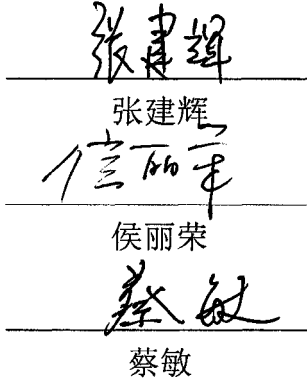 张建辉
张建辉
侯丽荣
侯丽荣
蔡敏
蔡敏